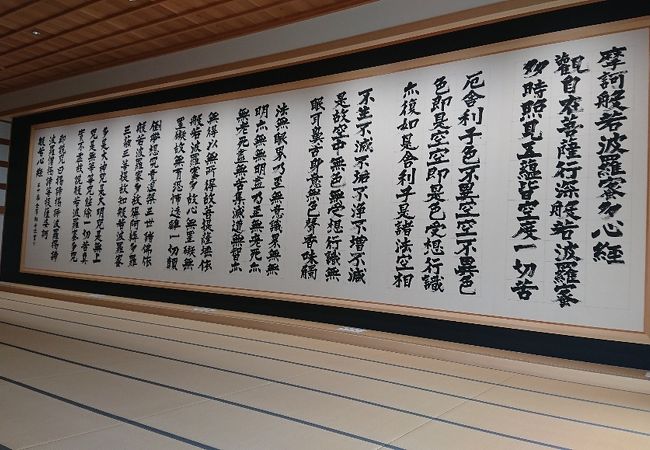 摩訶般若波羅蜜多心経
觀自在菩薩行深般若波羅蜜
多時照見五蘊皆空度一切苦
厄舎利子色不異空空不異色
色即是空空即是色受想行識
亦復如是舎利子是諸法空相
不生不滅不垢不浄不増不減
是故空中無色無受想行識無
眼耳鼻舌身意無色聲香味觸
法無眼界乃至無意識界無無
明亦無無明盡乃至無老死亦
無老死盡無苦集滅道無智亦
無得以無所得故菩提薩埵依
般若波羅蜜多故心無罣礙無
罣礙故無有恐怖遠離一切顛
倒夢想究竟涅槃三世諸佛依
般若波羅蜜多故得阿耨多羅
三藐三菩提故知般若波羅蜜
多是大神呪是大明呪是無上
呪是無等等呪能除一切苦真
實不虚故説般若波羅蜜多呪
即説呪曰羯諦羯諦波羅羯諦
波羅僧羯諦菩提薩婆訶
般若心経